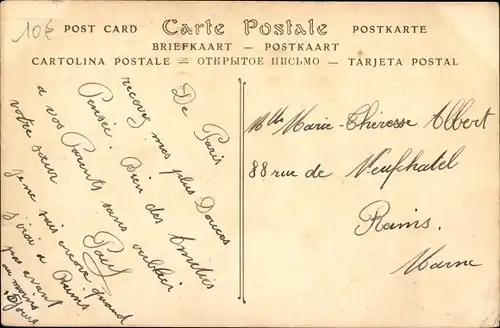 10€
POST CARD Carte Postale POSTKARTE
BRIEFKAART — POSTKAART
CARTOLINA POSTALE — ОТКРЫТОЕ ПИСЬМО — TARJETA POSTAL
De Paris
recevez mes plus Douces
Pensée. Bien des Amitiés
a vos Parents sans oublier
votre sœur Paul
je ne sais encore quand
j'irai a Reims
pas avant
au moins
8 jours
Mlle Marie-Thèresse Albert
88 rue de Neufchatel
Reims.
Marne